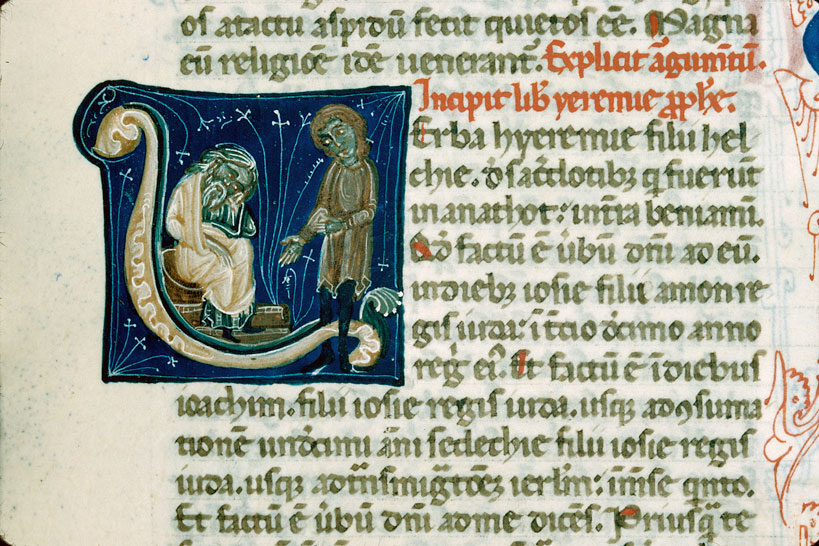 os atactu aspidū fecit quietos eē. Magna
eū religiōe idē uenerant̄. Explicit āgumtū.
Incipit lib̄ yeremie ꝓph̄e.
Uerba hyeremie filii hel
chie. d̄ sac̄dotibꝫ q̄ fuerūt
in anathot: in t̄ra beniamī.
Qd̄ factū ē ūbū dn̄i ad eū.
in diebꝫ iosie filii amon re
gis iuda: ī t̄cio dcīmo anno
regni eī. Et factū ē ī diebus
ioachim. filii iosie regis iuda. usqꝫ ad ꝯsuma
tionē undecimi āni sedechie filii iosie regis
iuda. usqꝫ ad t̄nsmig̃tōeꝫ ierl̄m: ī mīse qnto.
Et factū ē ūbū dn̄i ad me dicēs. Priusq̄ te